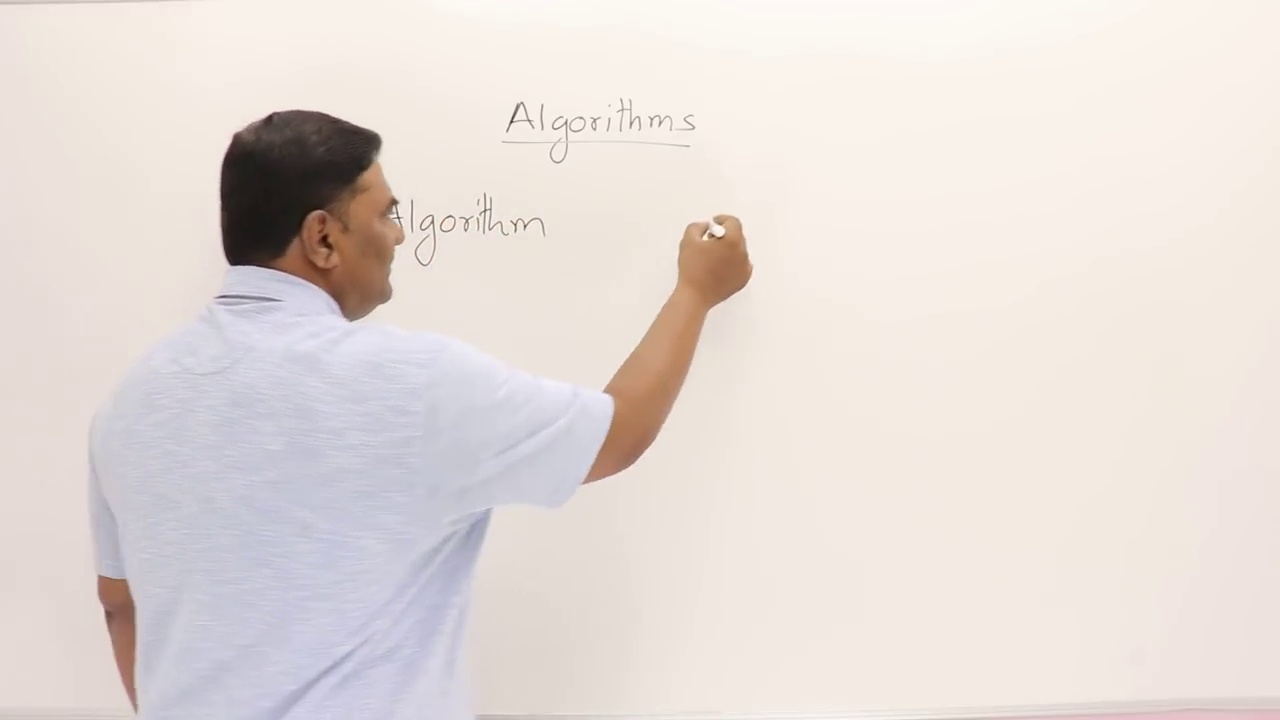 Algorithms
Algorithm